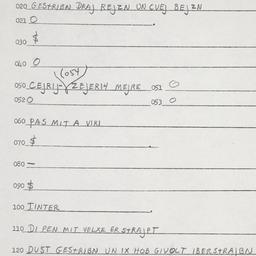 020 GESTRIBN DRAJ REJZN UN CVEJ BEJZN
021 0
030 $
040 0
(054)
050 CEJRIJ- ZEJERIY MEJRE 051 0
052 0 053 0
060 PAS MIT A VIRI
070 $
080 —
090 $
100 IINTER
110 DI PEN MIT VELXE ER STRAJPT
120 DUST GESTRIBN UN IX HOB GIVOLT IBERSTRAJBN